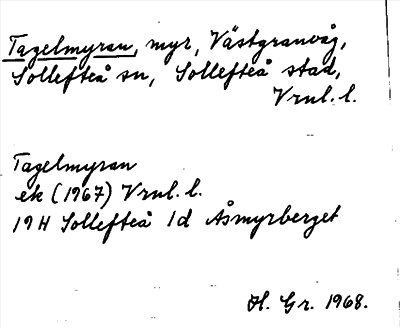 Tagelmyran, myr, Västgranvåg,
Sollefteå sn, Sollefteå stad,
Vrnl. l.
Tagelmyran
ek (1967) Vrnl. l.
19H Sollefteå 1d Åsmyrberget
H. Gr. 1968.